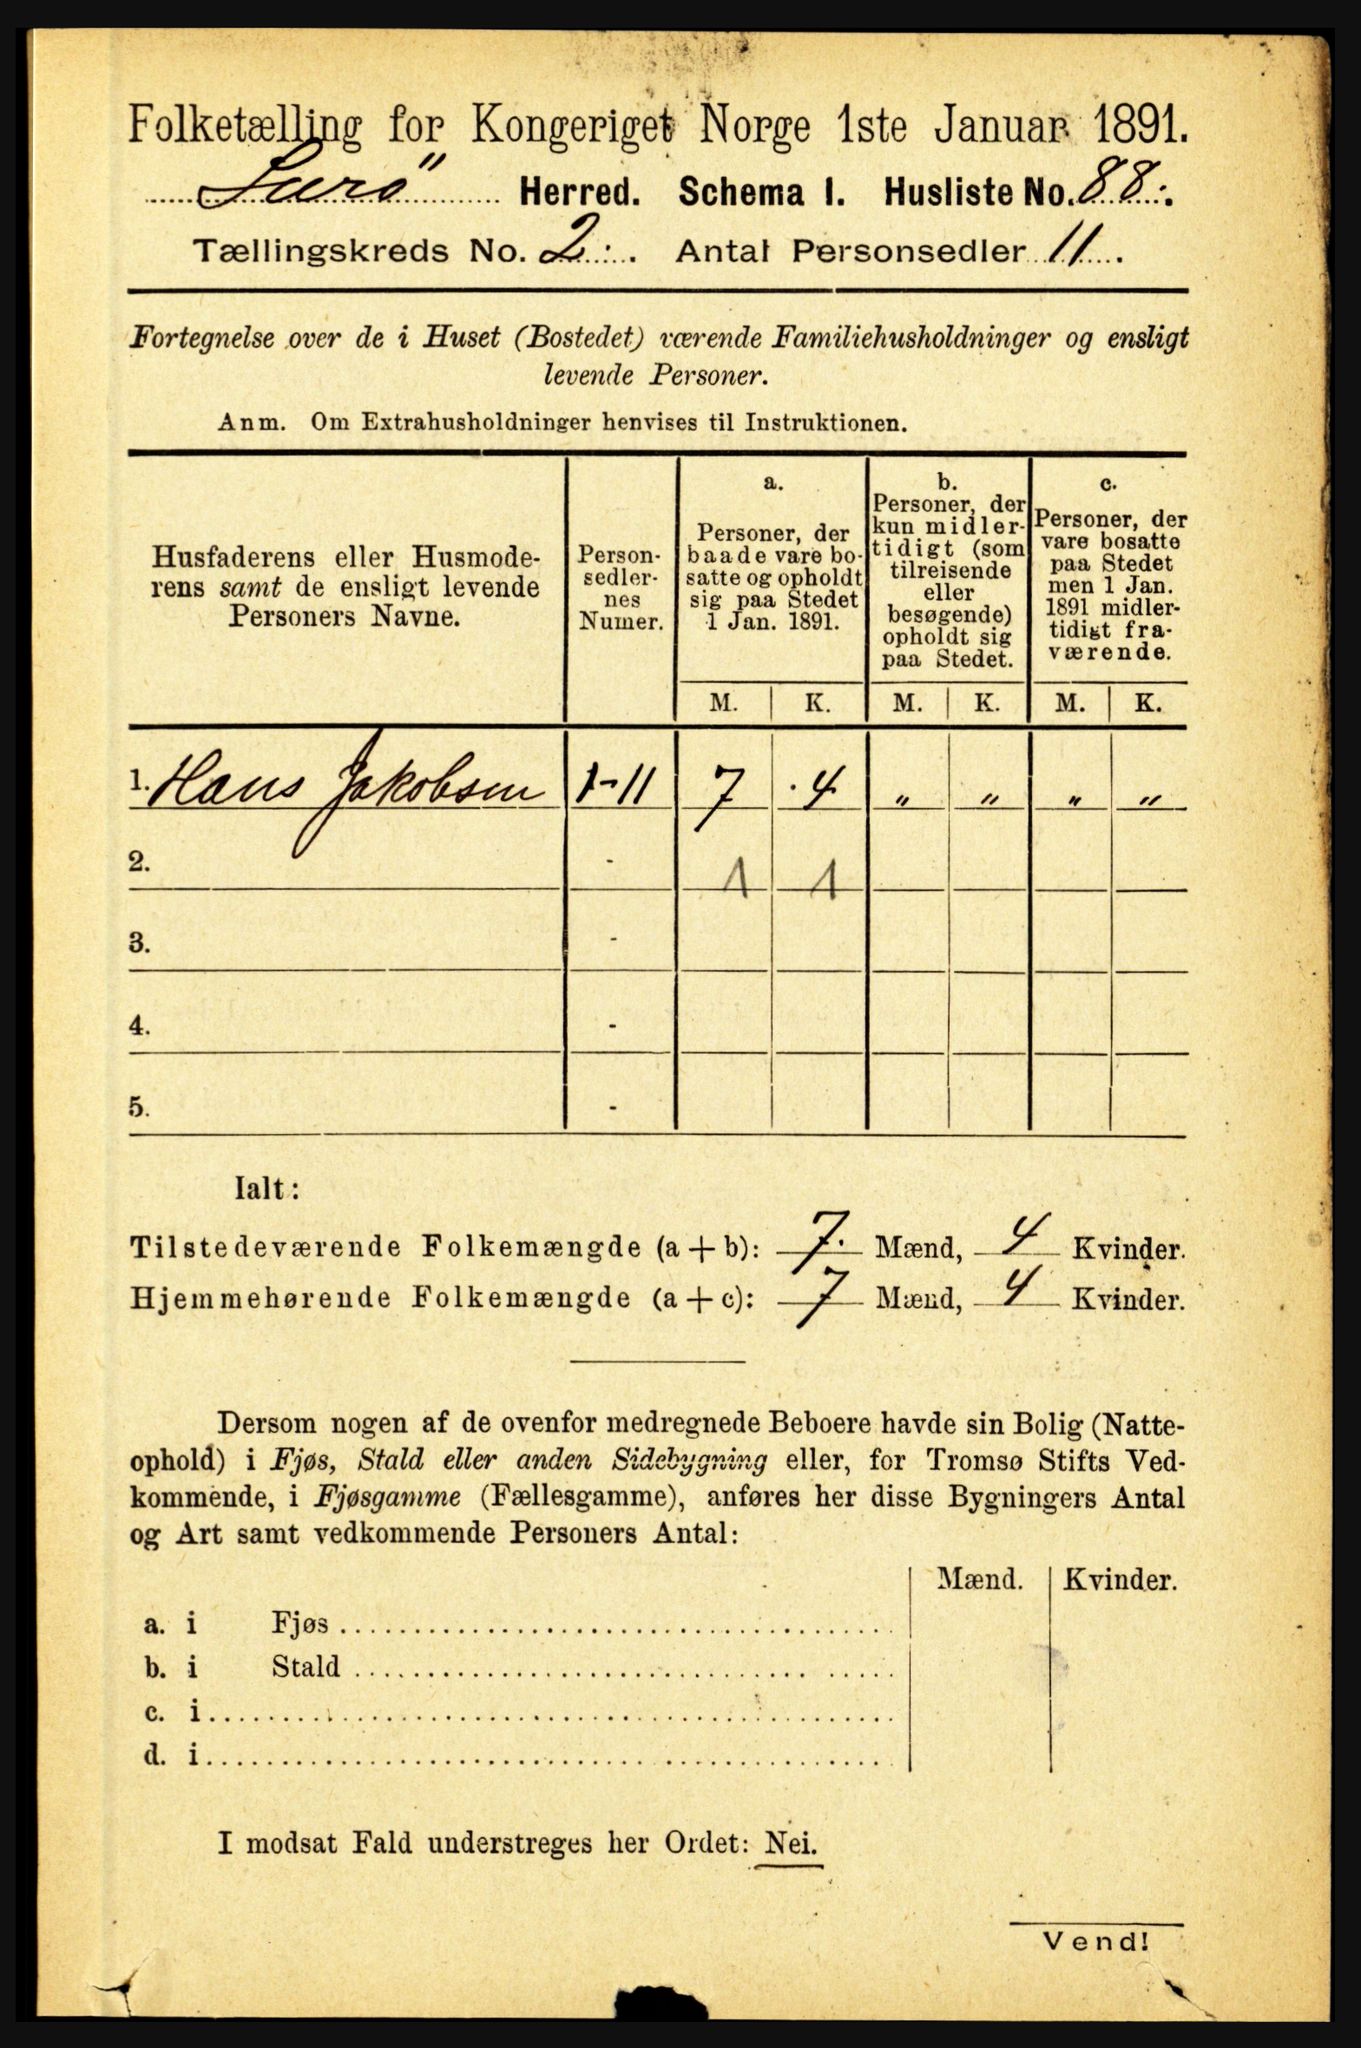 Folketælling for Kongeriget Norge 1ste Januar 1891.
Lurö Herred. Schema I. Husliste No. 88.
Tællingskreds No. 2. Antal Personsedler 11.
Fortegnelse over de i Huset (Bostedet) værende Familiehusholdninger og ensligt
levende Personer.
Anm. Om Extrahusholdninger henvises til Instruktionen.
Husfaderens eller Husmode-
rens samt de ensligt levende
Personers Navne.
Person-
sedler-
nes
Numer.
a.
Personer, der
baade vare bo-
satte og opholdt
sig paa Stedet
1 Jan. 1891.
b.
Personer, der
kun midler-
tidigt (som
tilreisende
eller
besøgende)
opholdt sig
paa Stedet.
c.
Personer, der
vare bosatte
paa Stedet
men 1 Jan.
1891 midler-
tidigt fra-
værende.
M. K. M. K. M. K.
1. Hans Jakobsen 1-11 7 4 " " " "
2. - 1 1
3. -
4. -
5. -
Ialt:
Tilstedeværende Folkemængde (a + b): 7. Mænd, 4 Kvinder.
Hjemmehørende Folkemængde (a + c): 7 Mænd, 4 Kvinder.
Dersom nogen af de ovenfor medregnede Beboere havde sin Bolig (Natte-
ophold) i Fjøs, Stald eller anden Sidebygning eller, for Tromsø Stifts Ved-
kommende, i Fjøsgamme (Fællesgamme), anføres her disse Bygningers Antal
og Art samt vedkommende Personers Antal:
Mænd. Kvinder.
a. i Fjøs
b. i Stald
c. i
d. i
I modsat Fald understreges her Ordet: Nei.
Vend!